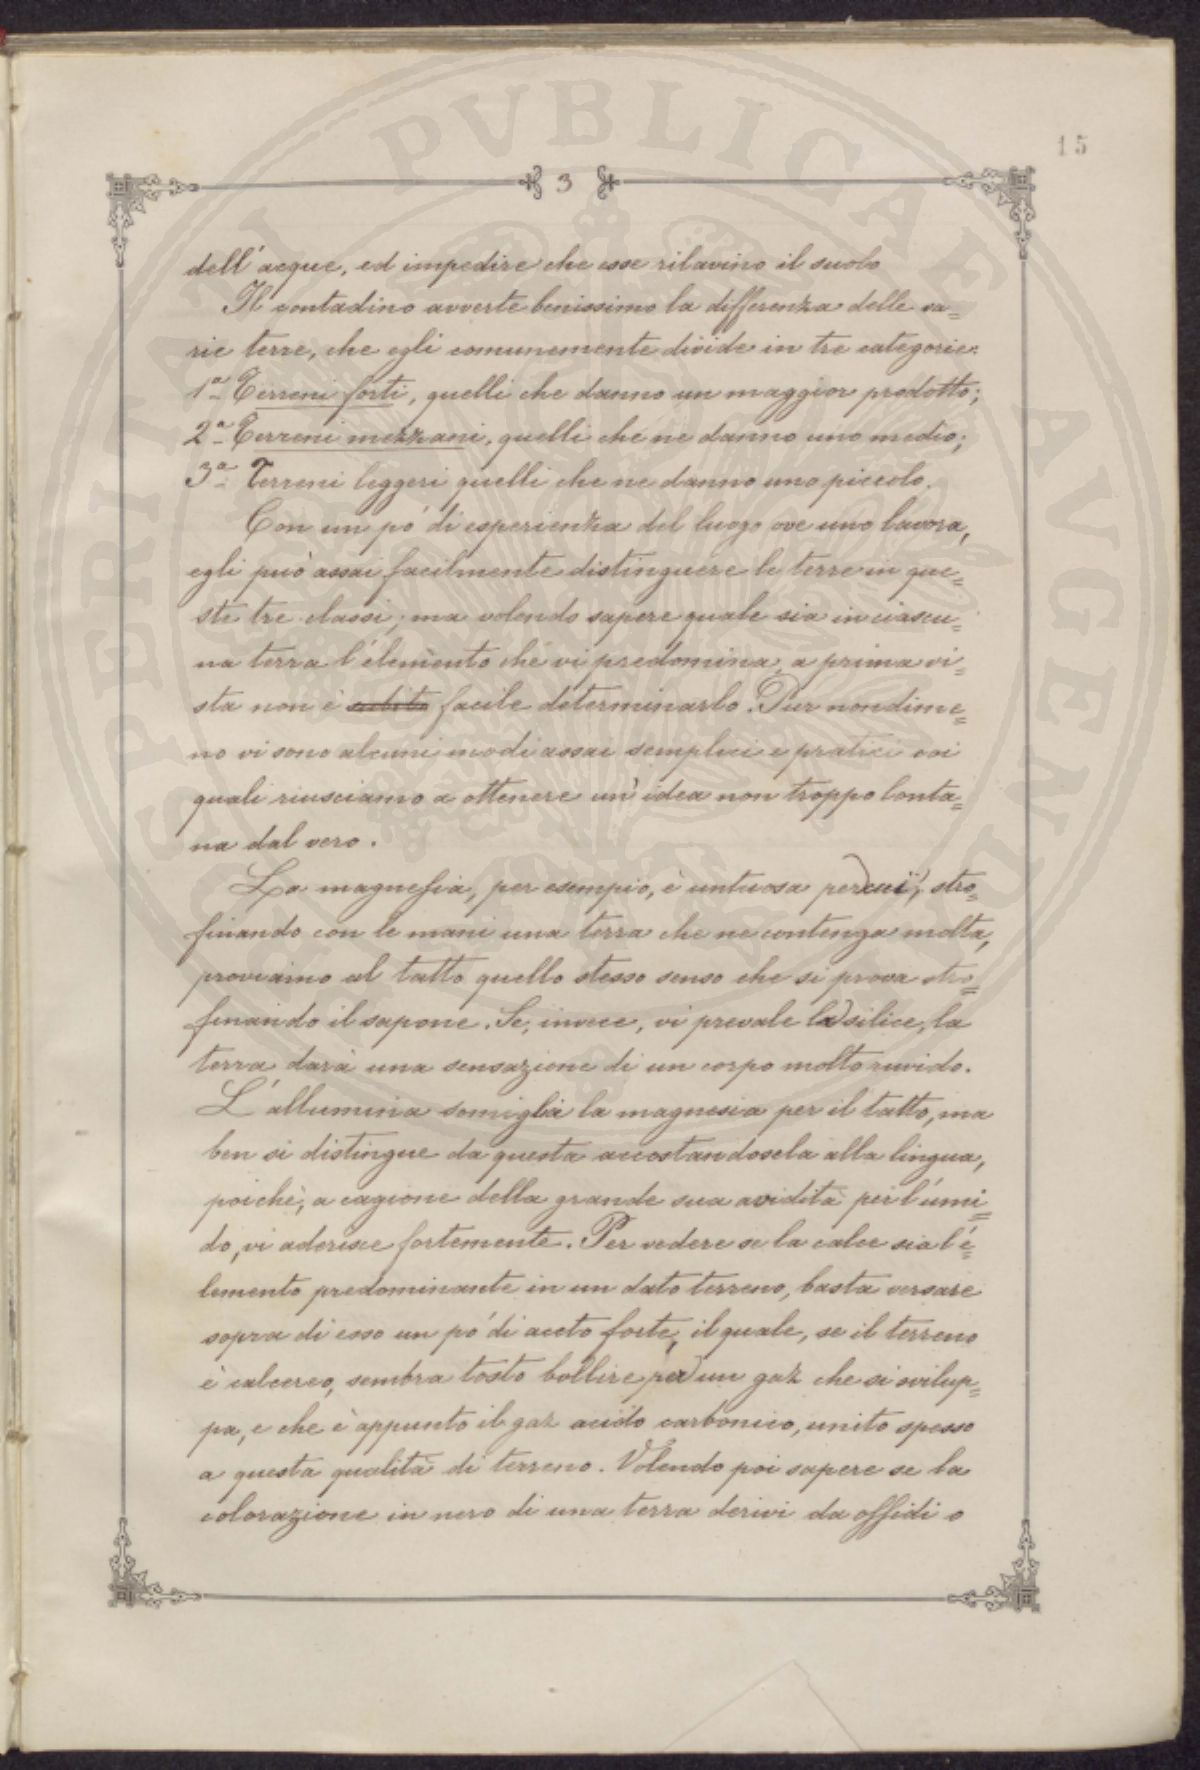 15
3
dell'acque, ed impedire che esse rilavino il suolo
Il contadino avverte benissimo la differenza delle va=
rie terre, che egli comunemente divide in tre categorie:
1ª Terreni forti, quelli che danno un maggior prodotto;
2ª Terreni mezzani, quelli che ne danno uno medio;
3ª Terreni leggeri quelli che ne danno uno piccolo.
Con un pò di esperienza del luogo ove uno lavora,
egli può assai facilmente distinguere le terre in que=
ste tre classi; ma volendo sapere quale sia in ciascu=
na terra l'elemento che vi predomina, a prima vi=
sta non è subito facile determinarlo. Pur nondime=
no vi sono alcuni modi assai semplici e pratici coi
quali riusciamo a ottenere un'idea non troppo lonta=
na dal vero.
La magnesia, per esempio, è untuosa percui, stro=
finando con le mani una terra che ne contenga molta,
proviamo al tatto quello stesso senso che si prova stro=
finando il sapone. Se, invece, vi prevale la silice, la
terra darà una sensazione di un corpo molto ruvido.
L'allumina somiglia la magnesia per il tatto, ma
ben si distingue da questa accostandosela alla lingua,
poichè, a cagione della grande sua avidità per l'umi=
do, vi aderisce fortemente. Per vedere se la calce sia l'e=
lemento predominante in un dato terreno, basta versare
sopra di esso un pò di aceto forte, il quale, se il terreno
è calcereo, sembra tosto bollire per un gaz che si svilup=
pa, e che è appunto il gaz acido carbonico, unito spesso
a questa qualità di terreno. Volendo poi sapere se la
colorazione in nero di una terra derivi da ossidi o
PROSPERITATI PVBLICAE AVGENDAE